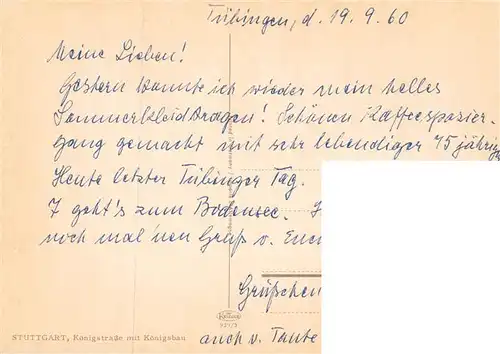 Tübingen, d. 19.9.60
Meine Lieben!
Gestern konnte ich wieder mein helles
Sommerkleid tragen! Schönen Kaffeespazier-
gang gemacht mit sehr lebendiger 75 jährig
Heute letzter Tübinger Tag.
7 geht's zum Bodensee.
noch mal 'nen Gruß v. Euch
Grüßchen
auch v. Tante
STUTTGART, Königstraße mit Königsbau